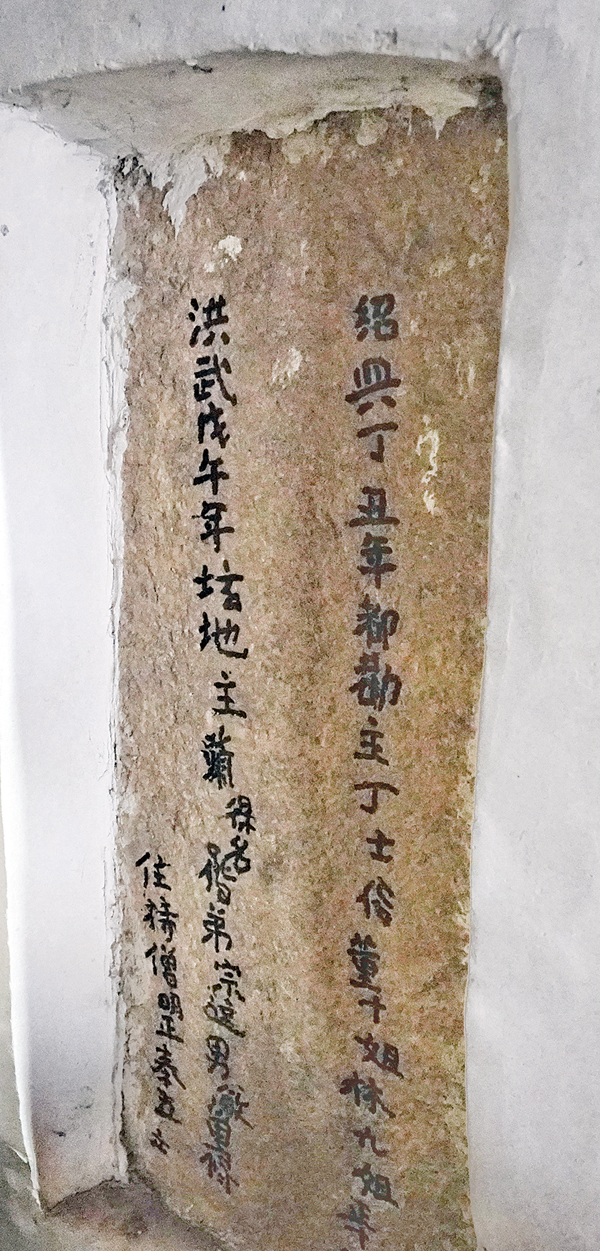 紹興丁丑年都勸主丁士俊董十姐林九姐等
洪武戊午年坛地主蕭得名偕弟宗遠男
住持僧明正泰